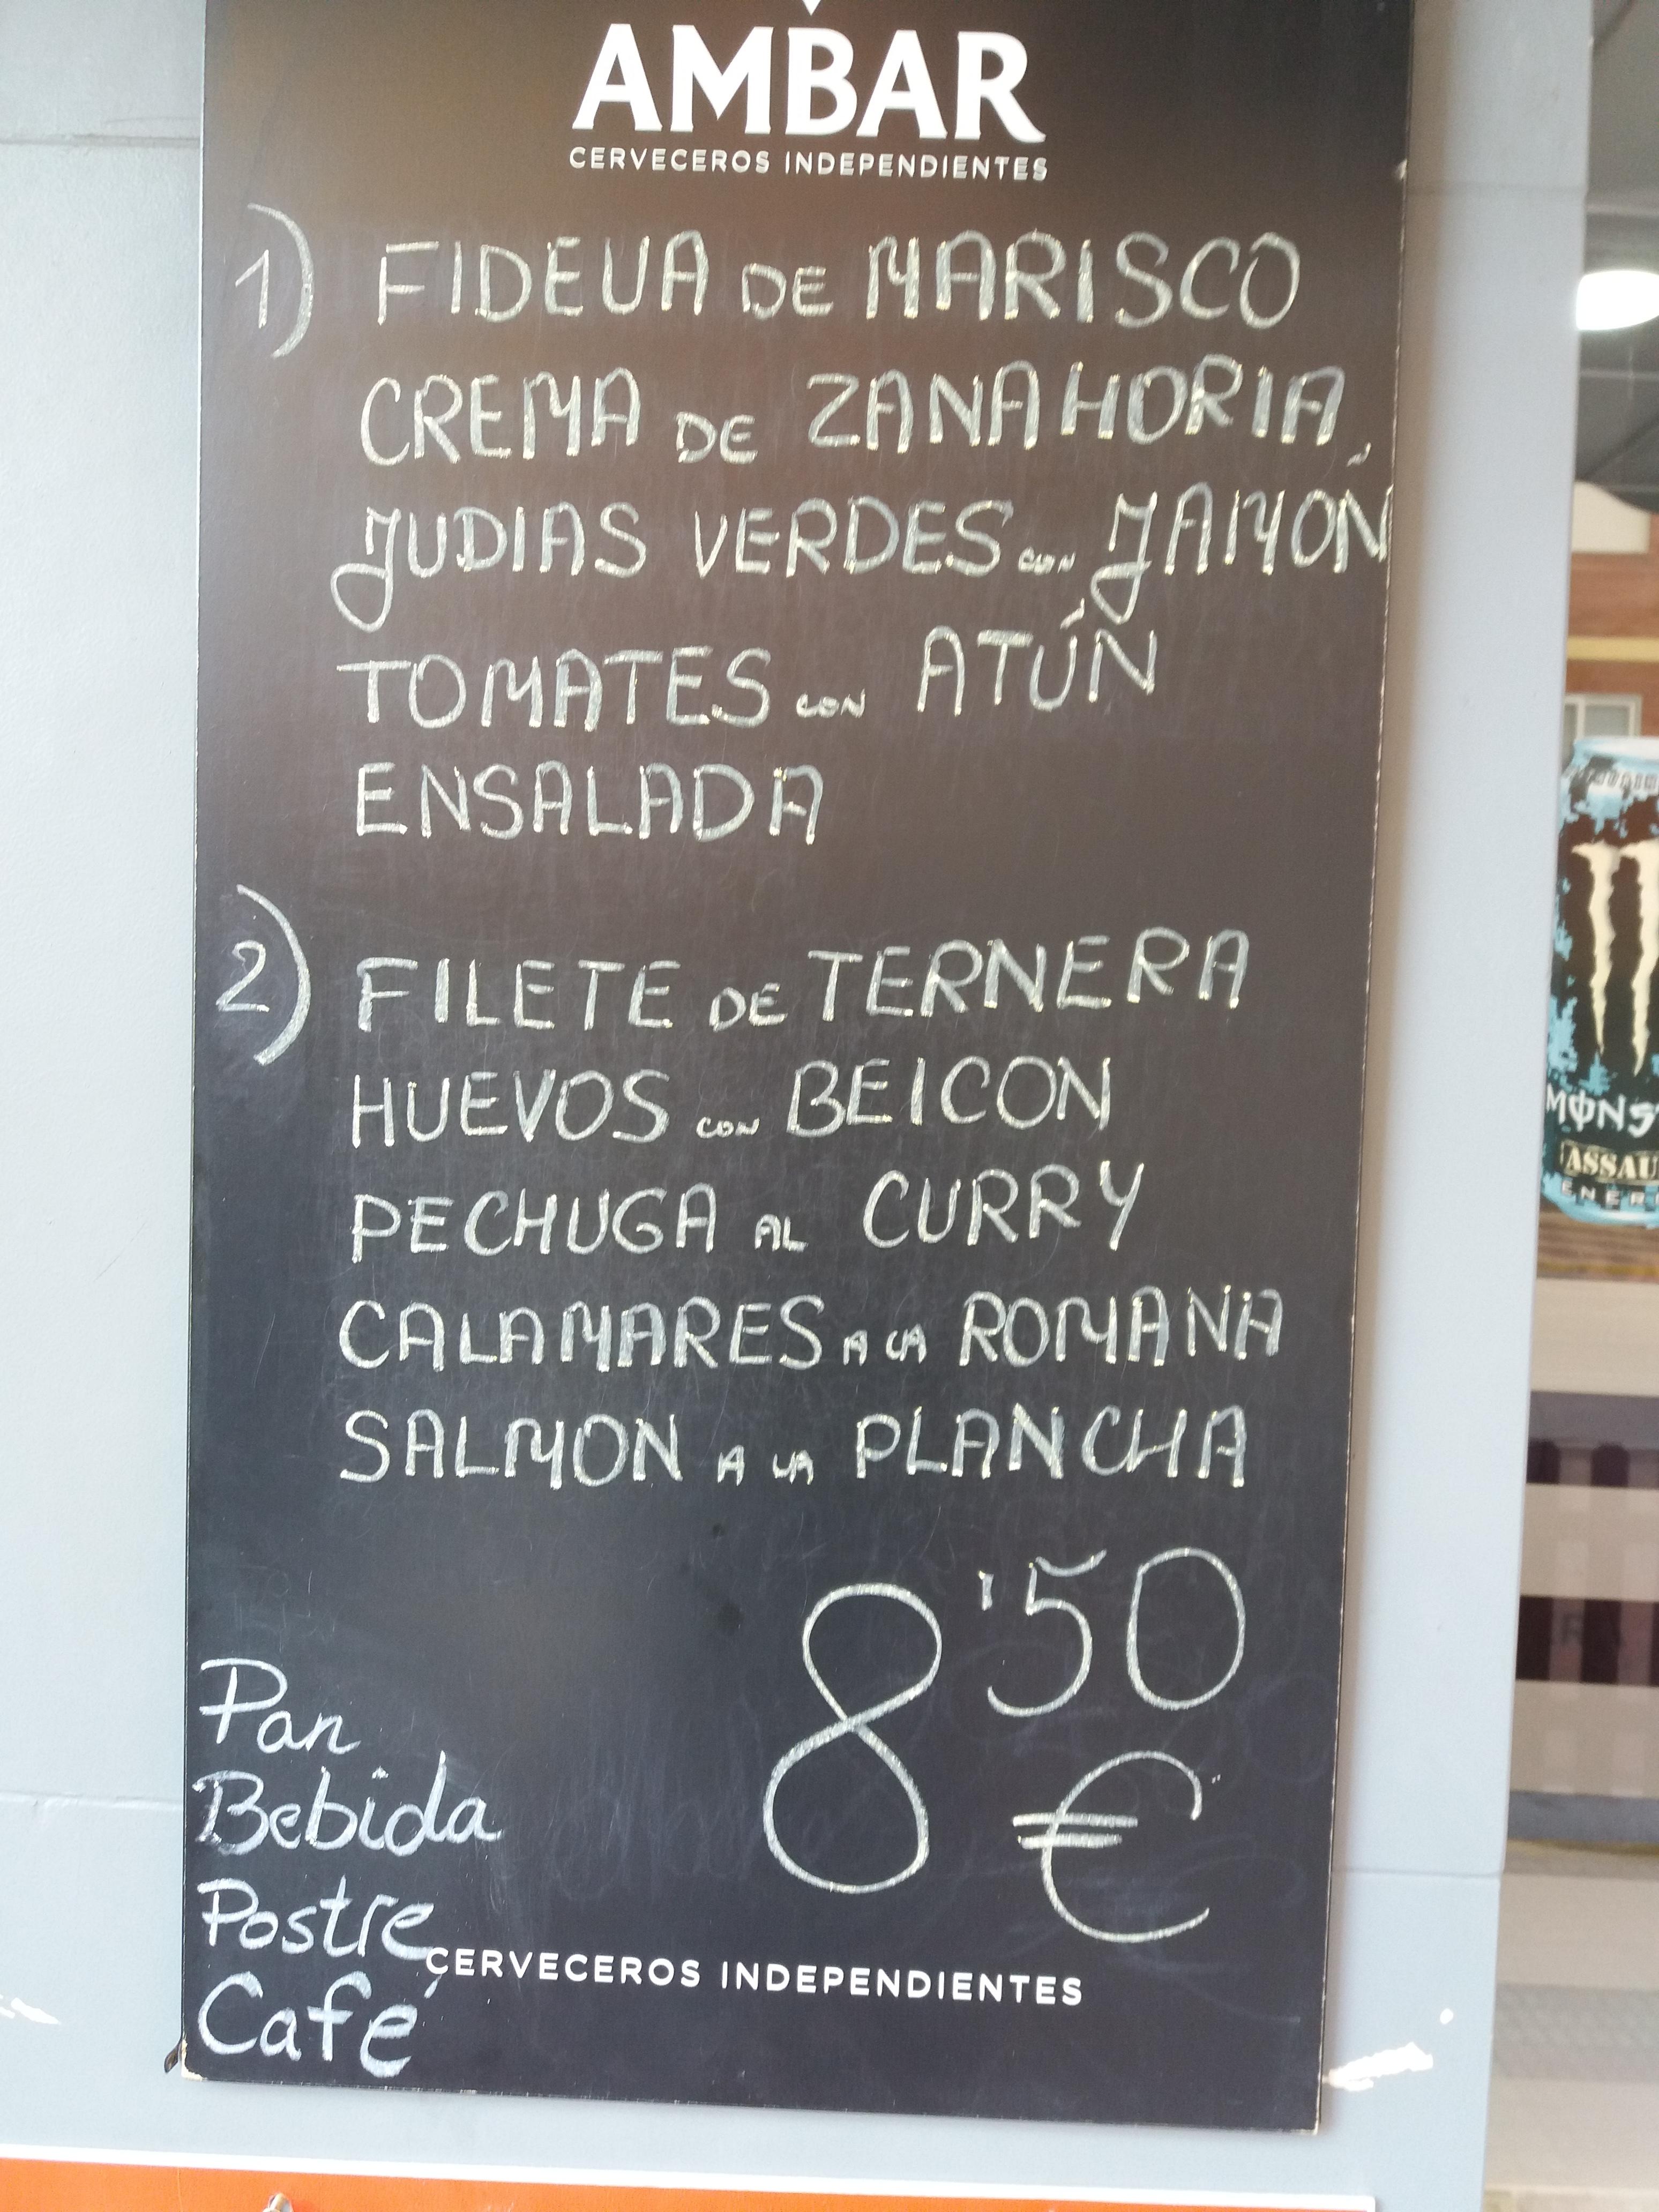 AMBAR
CERVECEROS INDEPENDIENTES
1) FIDEUA DE MARISCO
CREMA DE ZANAHORIA
JUDIAS VERDES CON JAMÓN
TOMATES CON ATÚN
ENSALADA
2) FILETE DE TERNERA
HUEVOS CON BEICON
PECHUGA AL CURRY
CALAMARES A LA ROMANA
SALMON A LA PLANCHA
8'50
€
Pan
Bebida
Postre
Café
CERVECEROS INDEPENDIENTES